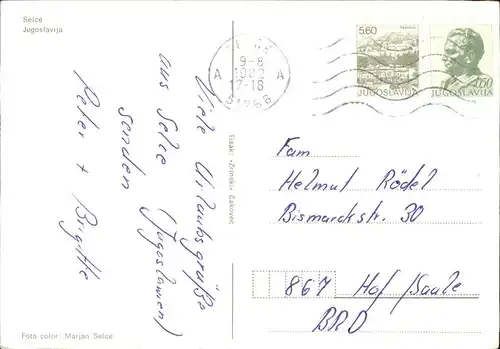 Selce
Jugoslavija
Viele Urlaubsgrüße
aus Selce (Jugoslawien)
senden
Peter + Brigitte
Tisak: »Zrinski« Čakovec
9-8
A 1982 A
17-18
51266
5.60
JUGOSLAVIJA
JUGOSLAVIJA
Fam
Helmut Rödel
Bismarckstr. 30
867 Hof/Saale
BRD
Foto color: Marjan Selce